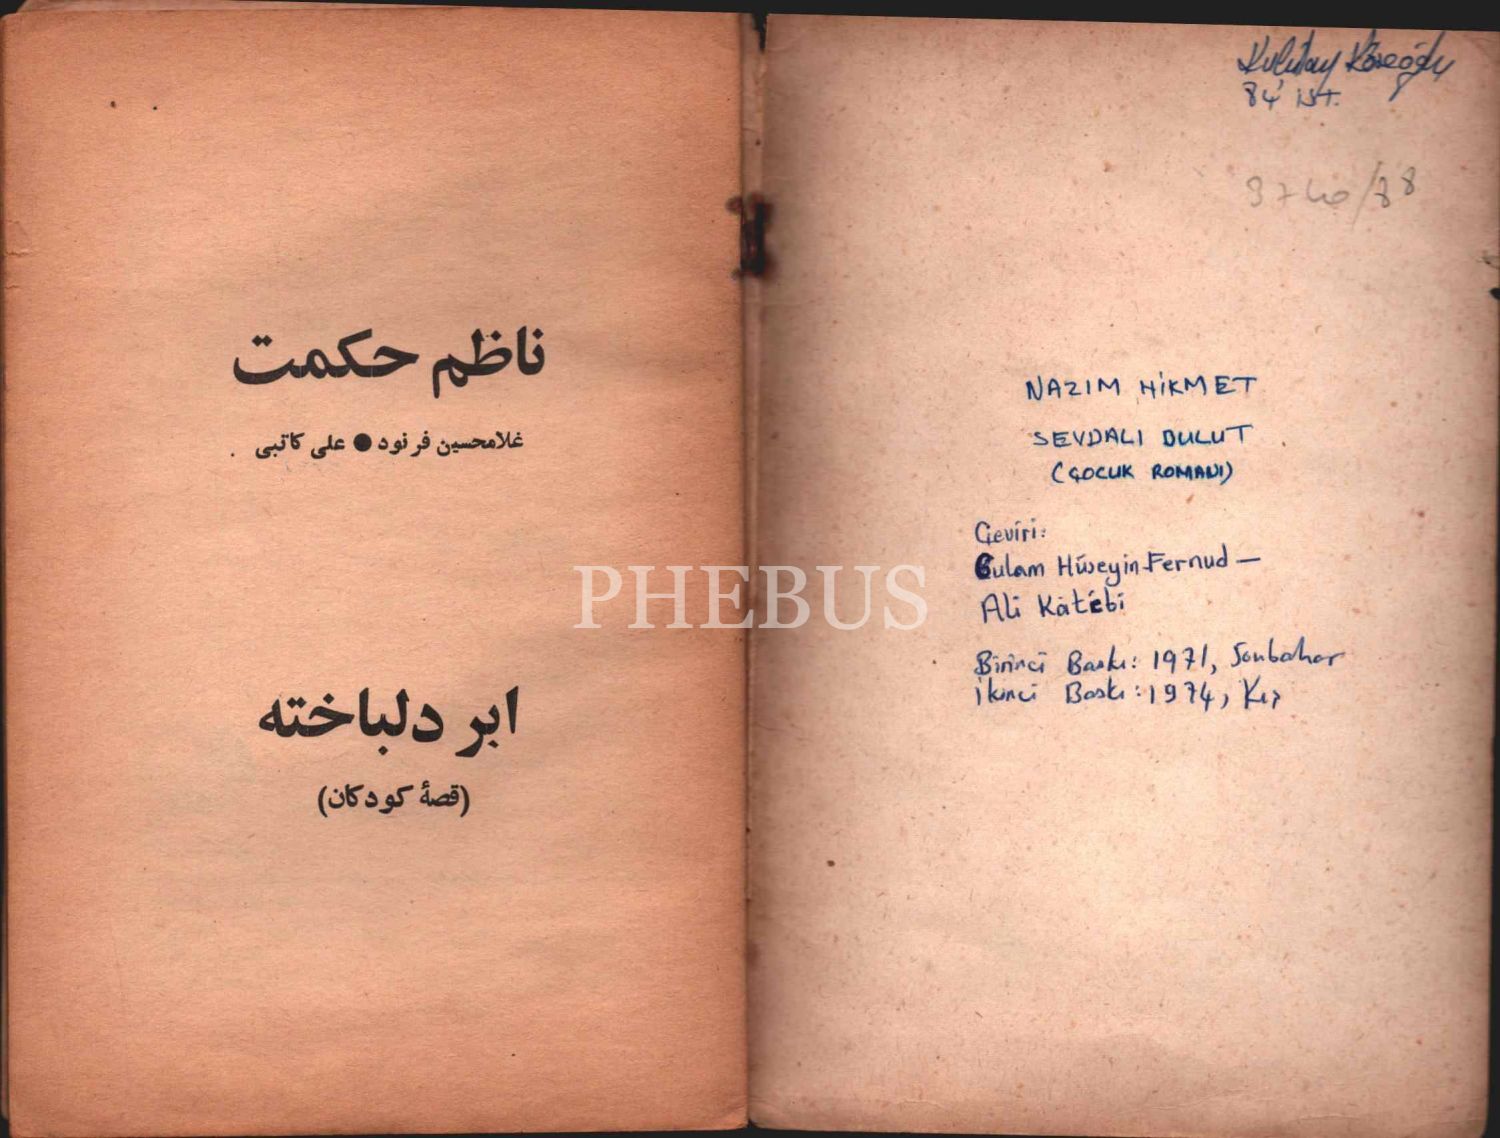 ناظم حکمت
غلامحسین فرنود ● علی کاتبی
ابر دلباخته
(قصهٔ کودکان)
Köseoğlu
84' İST.
NAZIM HİKMET
SEVDALI BULUT
(ÇOCUK ROMANI)
Çeviri:
Gulam Hüseyin Fernud —
Ali Kâtébi
Birinci Baskı: 1971, Sonbahar
İkinci Baskı: 1974, Kış
PHEBUS